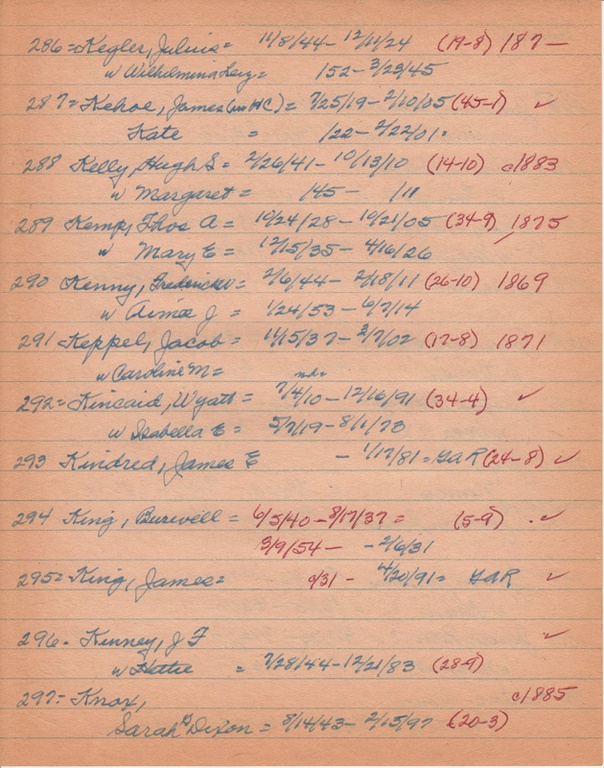 286=Kegler, Julius= 11/8/44- 12/11/24 (19-8) 187-
w Wilhelmina = 152-3/23/45
287= Kehoe, James = 7/25/19- 2/10/05 (45-1) ✓
Kate = /22- 2/22/01=
288 Kelly, Hugh S = 2/26/41- 10/13/10 (14-10) c1883
w Margaret = 145- /11
289 Kemp, Thos A = 10/24/28- 10/21/05 (34-9) 1875
w Mary E = 12/15/35- 4/16/26
290 Kenny, Frederick = 2/6/44- 2/18/11 (26-10) 1869
w Aimee J = 1/24/53- 6/7/14
291=Keppel, Jacob = 11/15/37- 3/7/02 (17-8) 1871
w Caroline M=
292=Kincaid, Wyatt = 7/4/10-12/16/91 (34-4) ✓
w Isabella E = 5/7/19-8/1/73
293 Kindred, James E - 1/17/81=GAR (24-8) ✓
294 King, Burwell = 6/5/40-8/17/37= (5-9) ✓
3/9/54- -2/6/31
295= King, James= 9/31- 4/20/91= GAR ✓
296- Kinney, J F ✓
w Hattie = 7/28/44-12/21/83 (28-9)
297= Knox, c1885
Sarah Dixon = 8/14/43- 2/15/97 (20-3)